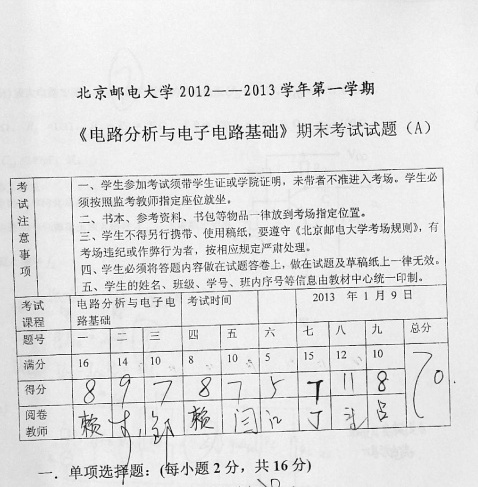 北京邮电大学2012——2013学年第一学期
《电路分析与电子电路基础》期末考试试题（A）
考试注意事项
一、学生参加考试须带学生证或学院证明，未带者不准进入考场。学生必
须按照监考教师指定座位就坐。
二、书本、参考资料、书包等物品一律放到考场指定位置。
三、学生不得另行携带、使用稿纸，要遵守《北京邮电大学考场规则》，有
考场违纪或作弊行为者，按相应规定严肃处理。
四、学生必须将答题内容做在试题答卷上，做在试题及草稿纸上一律无效。
五、学生的姓名、班级、学号、班内序号等信息由教材中心统一印制。
考试课程 电路分析与电子电路基础 考试时间 2013 年 1 月 9 日
题号 一 二 三 四 五 六 七 八 九 总分
满分 16 14 10 8 10 5 15 12 10
得分 8 9 7 8 7 5 7 11 8 70.
阅卷教师 赖 郭 赖 闫 江 丁 吕
一．单项选择题：(每小题 2 分，共 16 分)